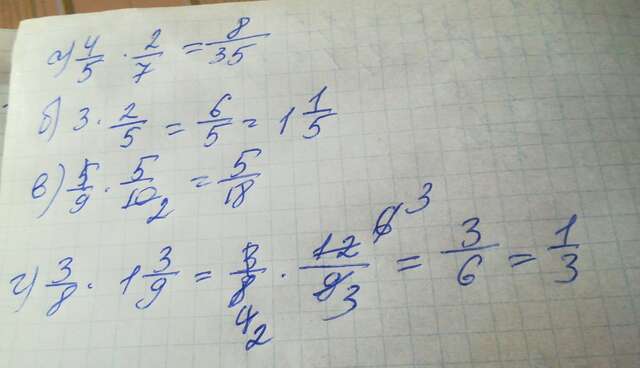 а) 4/5 · 2/7 = 8/35
б) 3 · 2/5 = 6/5 = 1 1/5
в) 5/9 · 5/10 2 = 5/18
г) 3/8 · 1 3/9 = 3/8 4 2 · 12/9 6 3 3 = 3/6 = 1/3